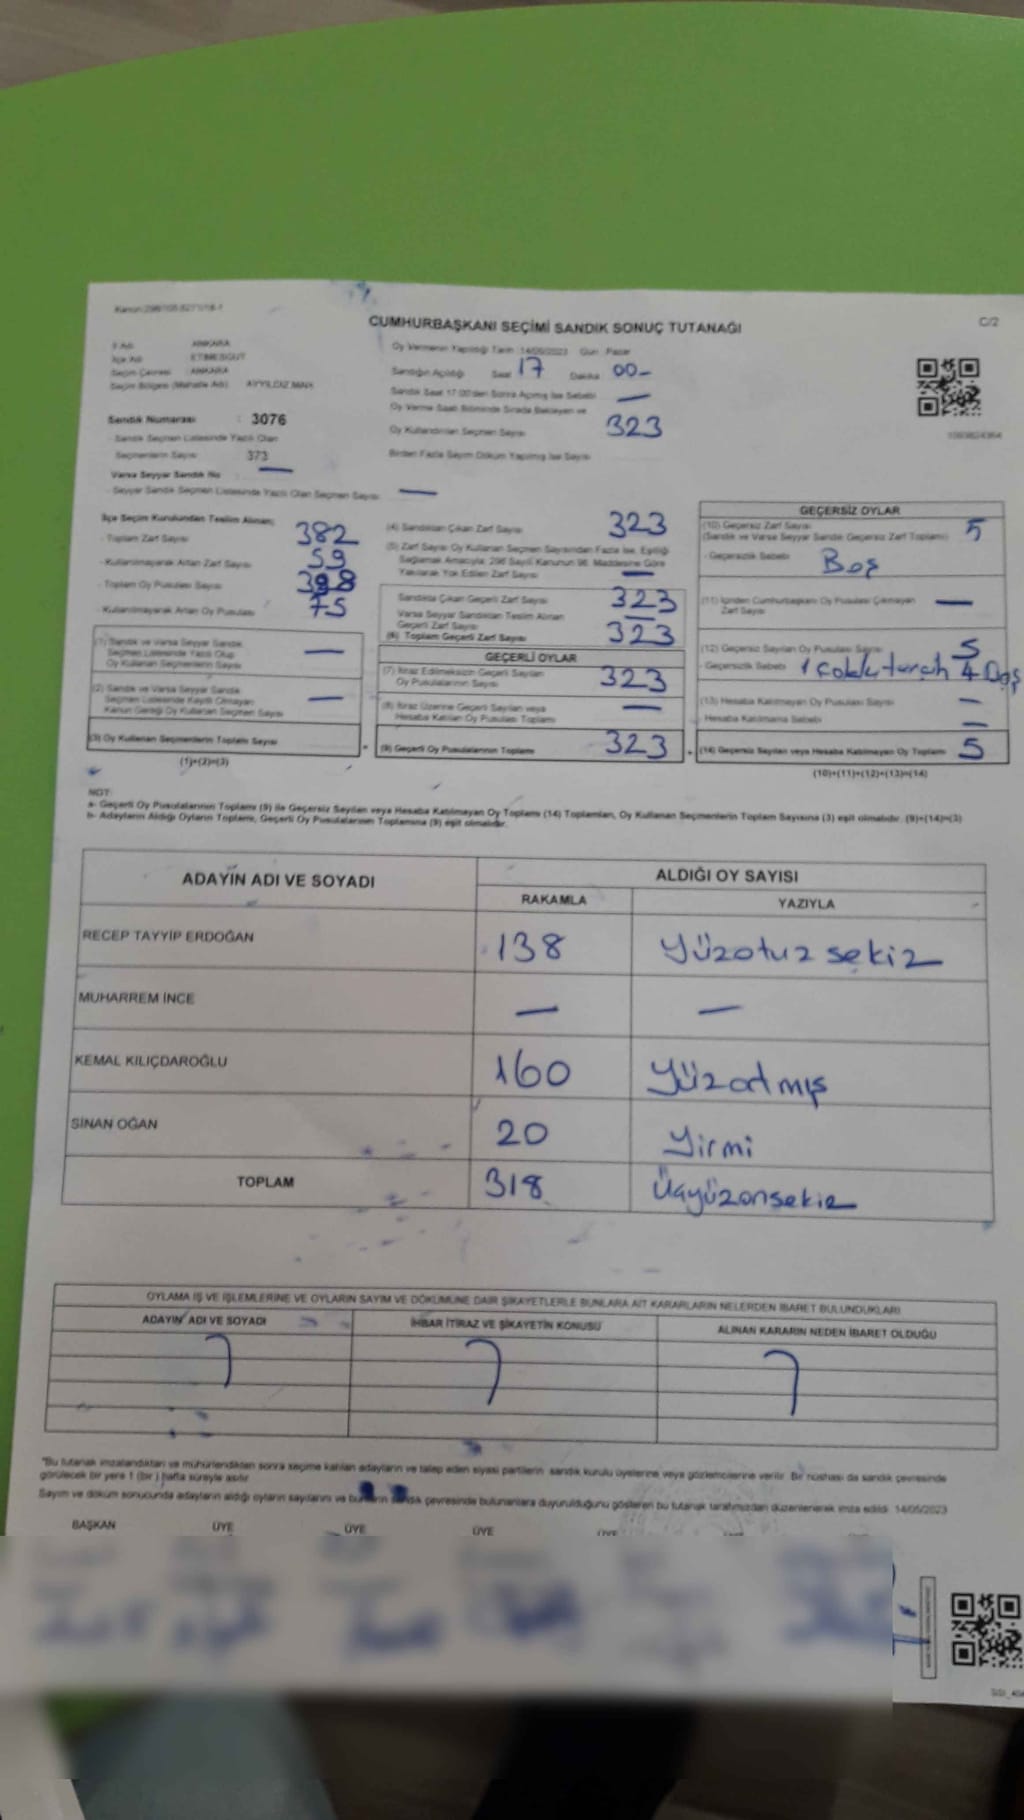 CUMHURBAŞKANI SEÇİMİ SANDIK SONUÇ TUTANAĞI
C/2
İl Adı ANKARA
İlçe Adı ETİMESGUT
Seçim Çevresi ANKARA
Seçim Bölgesi (Mahalle Adı) AYYILDIZ MAH.
Sandık Numarası : 3076
Sandık Seçmen Listesinde Yazılı Olan
Seçmenlerin Sayısı 373
Varsa Seyyar Sandık No —
Seyyar Sandık Seçmen Listesinde Yazılı Olan Seçmen Sayısı —
Oy Vermenin Yapıldığı Tarih : 14/05/2023 Gün : Pazar
Sandığın Açıldığı Saat 17 Dakika 00-
Sandık Saat 17.00'den Sonra Açılmış İse Sebebi —
Oy Verme Saati Bitiminde Sırada Bekleyen ve
Oy Kullandırılan Seçmen Sayısı 323
Birden Fazla Sayım Döküm Yapılmış İse Sayısı
İlçe Seçim Kurulundan Teslim Alınan;
- Toplam Zarf Sayısı 382
- Kullanılmayarak Artan Zarf Sayısı 59
- Toplam Oy Pusulası Sayısı
- Kullanılmayarak Artan Oy Pusulası 75
(1) Sandık ve Varsa Seyyar Sandık
Seçmen Listesinde Yazılı Olup
Oy Kullanan Seçmenlerin Sayısı —
(2) Sandık ve Varsa Seyyar Sandık
Seçmen Listesinde Kayıtlı Olmayan
Kanun Gereği Oy Kullanan Seçmen Sayısı —
(3) Oy Kullanan Seçmenlerin Toplam Sayısı
(1)+(2)=(3)
(4) Sandıktan Çıkan Zarf Sayısı 323
(5) Zarf Sayısı Oy Kullanan Seçmen Sayısından Fazla İse, Eşitliği
Sağlamak Amacıyla; 298 Sayılı Kanunun 98. Maddesine Göre
Yakılarak Yok Edilen Zarf Sayısı —
Sandıkta Çıkan Geçerli Zarf Sayısı 323
Varsa Seyyar Sandıktan Teslim Alınan
Geçerli Zarf Sayısı
(6) Toplam Geçerli Zarf Sayısı 323
GEÇERLİ OYLAR
(7) İtiraz Edilmeksizin Geçerli Sayılan
Oy Pusulalarının Sayısı 323
(8) İtiraz Üzerine Geçerli Sayılan veya
Hesaba Katılan Oy Pusulası Toplamı —
(9) Geçerli Oy Pusulalarının Toplamı 323
GEÇERSİZ OYLAR
(10) Geçersiz Zarf Sayısı 5
(Sandık ve Varsa Seyyar Sandık Geçersiz Zarf Toplamı)
- Geçersizlik Sebebi Boş
(11) İçinden Cumhurbaşkanı Oy Pusulası Çıkmayan
Zarf Sayısı —
(12) Geçersiz Sayılan Oy Pusulası Sayısı 5
- Geçersizlik Sebebi 4 Boş
(13) Hesaba Katılmayan Oy Pusulası Sayısı —
- Hesaba Katılmama Sebebi —
(14) Geçersiz Sayılan veya Hesaba Katılmayan Oy Toplamı 5
(10)+(11)+(12)+(13)=(14)
NOT:
a- Geçerli Oy Pusulalarının Toplamı (9) ile Geçersiz Sayılan veya Hesaba Katılmayan Oy Toplamı (14) Toplamları, Oy Kullanan Seçmenlerin Toplam Sayısına (3) eşit olmalıdır. (9)+(14)=(3)
b- Adayların Aldığı Oyların Toplamı, Geçerli Oy Pusulalarının Toplamına (9) eşit olmalıdır.
ADAYIN ADI VE SOYADI
ALDIĞI OY SAYISI
RAKAMLA YAZIYLA
RECEP TAYYİP ERDOĞAN 138 Yüzotuz sekiz
MUHARREM İNCE — —
KEMAL KILIÇDAROĞLU 160 Yüzaltmış
SİNAN OĞAN 20 Yirmi
TOPLAM 318 Üçyüzonsekiz
OYLAMA İŞ VE İŞLEMLERİNE VE OYLARIN SAYIM VE DÖKÜMÜNE DAİR ŞİKAYETLERLE BUNLARA AİT KARARLARIN NELERDEN İBARET BULUNDUKLARI
ADAYIN ADI VE SOYADI İHBAR İTİRAZ VE ŞİKAYETİN KONUSU ALINAN KARARIN NEDEN İBARET OLDUĞU
"Bu tutanak imzalandıktan ve mühürlendikten sonra seçime katılan adayların ve talep eden siyasi partilerin sandık kurulu üyelerine veya gözlemcilerine verilir. Bir nüshası da sandık çevresinde
görülecek bir yere 1 (bir) hafta süreyle asılır.
Sayım ve döküm sonucunda adayların aldığı oyların sayılarını ve bunların sandık çevresinde bulunanlara duyurulduğunu gösteren bu tutanak tarafımızdan düzenlenerek imza edildi. 14/05/2023
BAŞKAN ÜYE ÜYE ÜYE ÜYE ÜYE ÜYE